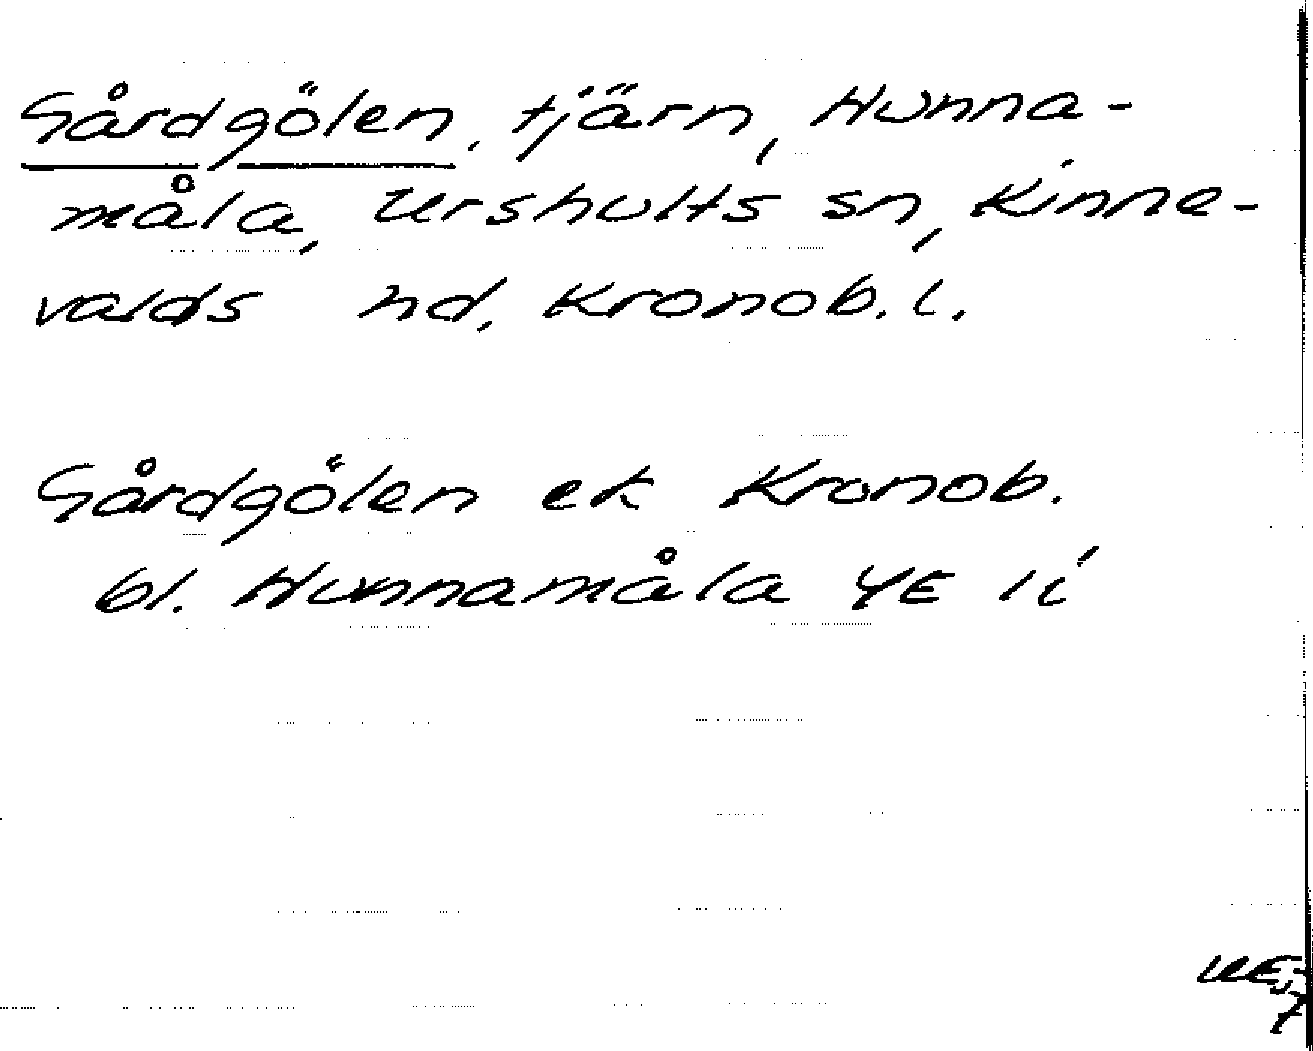 Gårdgölen, tjärn, Hunna-
måla, Urshults sn, Kinne-
valds hd. Kronob. l.
Gårdgölen ek Kronob.
bl. Hunnamåla 4E 1i